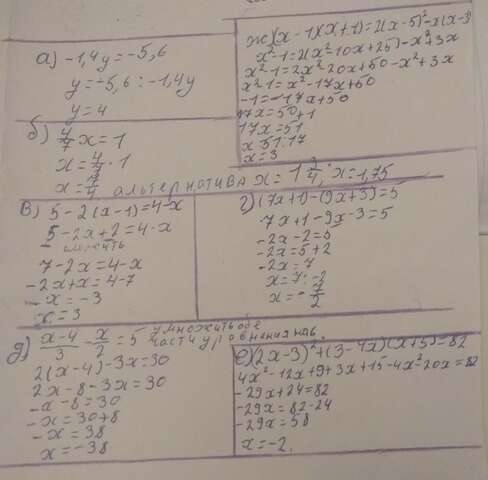 а) -1,4y=-5,6
y=-5,6:-1,4y
y=4
б) 4/7 x=1
x=4/7·1
x=7/4 альтернатива x=1 3/4; x=1,75
ж)(x-1)(x+1)=2(x-5)²-x(x-3)
x²-1=2(x²-10x+25)-x²+3x
x²-1=2x²-20x+50-x²+3x
x²-1=x²-17x+50
-1=-17x+50
17x=50+1
17x=51
x 51:17
x=3
в) 5-2(x-1)=4-x
5-2x+2=4-x
сложить
7-2x=4-x
-2x+x=4-7
-x=-3
x=3
г)(7x+1)-(9x+3)=5
7x+1-9x-3=5
-2x-2=5
-2x=5+2
-2x=7
x=7:-2
x=-7/2
д) x-4/3 - x/2=5 умножить обе части уровнения на 6.
2(x-4)-3x=30
2x-8-3x=30
-x-8=30
-x=30+8
-x=38
x=-38
е)(2x-3)²+(3-4x)(x+5)=82
4x²-12x+9+3x+15-4x²-20x=82
-29x+24=82
-29x=82-24
-29x=58
x=-2.